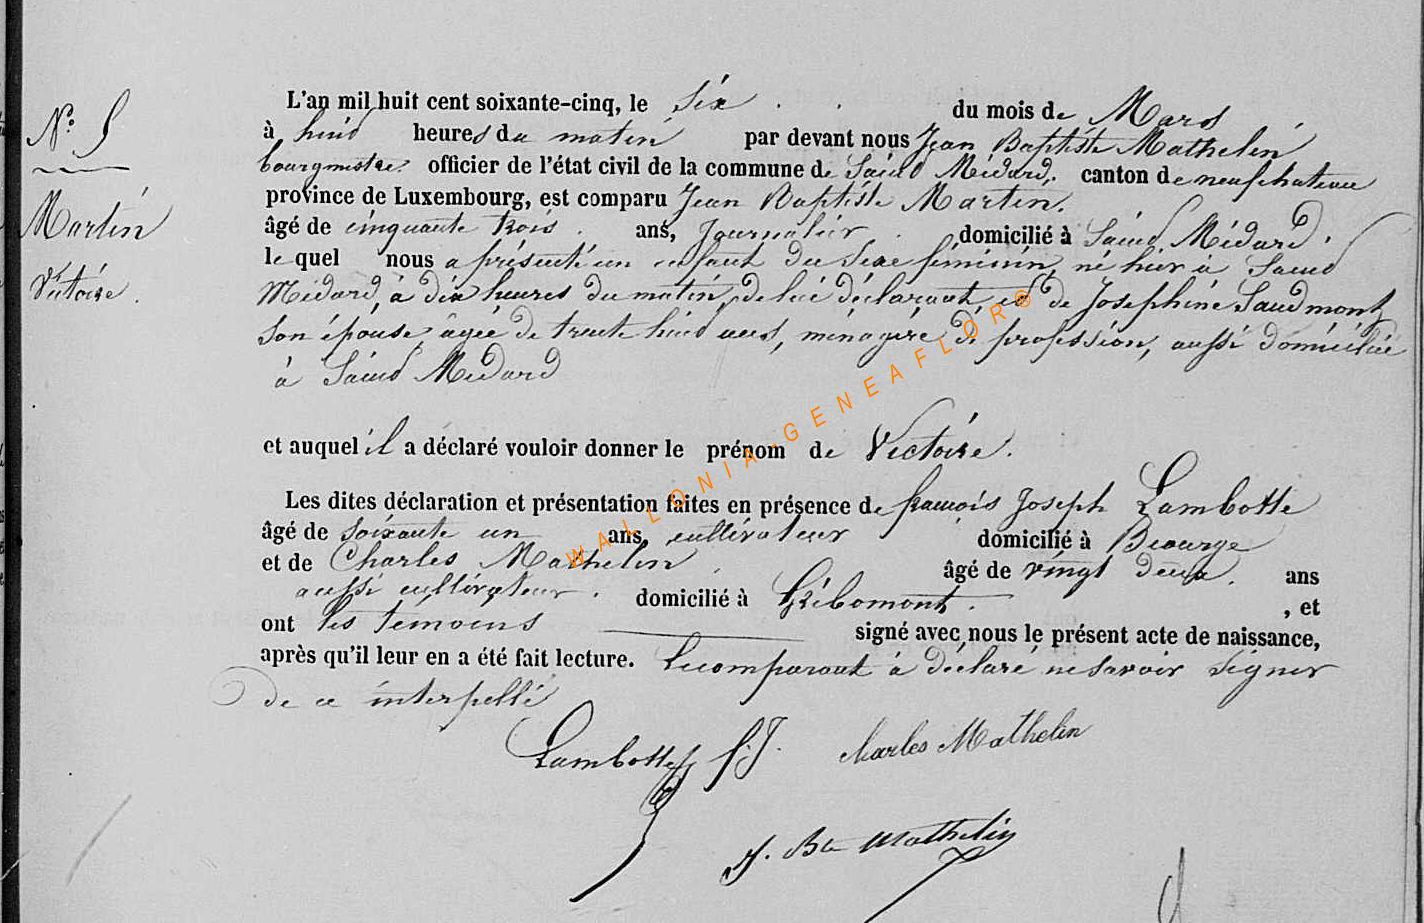 N° 5
Martin
Victoire.
L'an mil huit cent soixante-cinq, le six . . du mois de Mars
à huit heures du matin par devant nous Jean Baptiste Mathelin
bourgmestre officier de l'état civil de la commune de Saint Médard, canton de neufchateau
province de Luxembourg, est comparu Jean Baptiste Martin.
âgé de cinquante trois . ans, Journalier . domicilié à Saint Médard,
lequel nous a présenté un enfant du sexe féminin, né hier à Saint
Médard, à dix heures du matin, de lui déclarant, et de Joséphine Saudmont
son épouse âgée de trente huit ans, ménagère de profession, aussi domiciliée
à Saint Médard
et auquel il a déclaré vouloir donner le prénom de Victoire.
Les dites déclaration et présentation faites en présence de françois Joseph Lambotte
âgé de soixante un ans, cultivateur domicilié à Biourge
et de Charles Mathelin . âgé de vingt deux . ans
aussi cultivateur . domicilié à Gribomont . , et
ont les témoins signé avec nous le présent acte de naissance,
après qu'il leur en a été fait lecture. Le comparant à déclaré ne savoir signer
de ce interpellé
Lambotte f.J. charles Mathelin
J. Bte Mathelin
WALLONIA-GENEAFLOR®